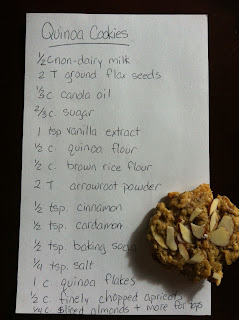 Quinoa Cookies
1/2 c non-dairy milk
2 T ground flax seeds
1/3 c canola oil
2/3 c. sugar
1 tsp vanilla extract
1/2 c. quinoa flour
1/2 c. brown rice flour
2 T arrowroot powder
1/2 tsp. cinnamon
1/2 tsp. cardamon
1/2 tsp. baking soda
1/4 tsp. salt
1 c. quinoa flakes
1/2 c. finely chopped apricots
1/4 c. sliced almonds + more for tops